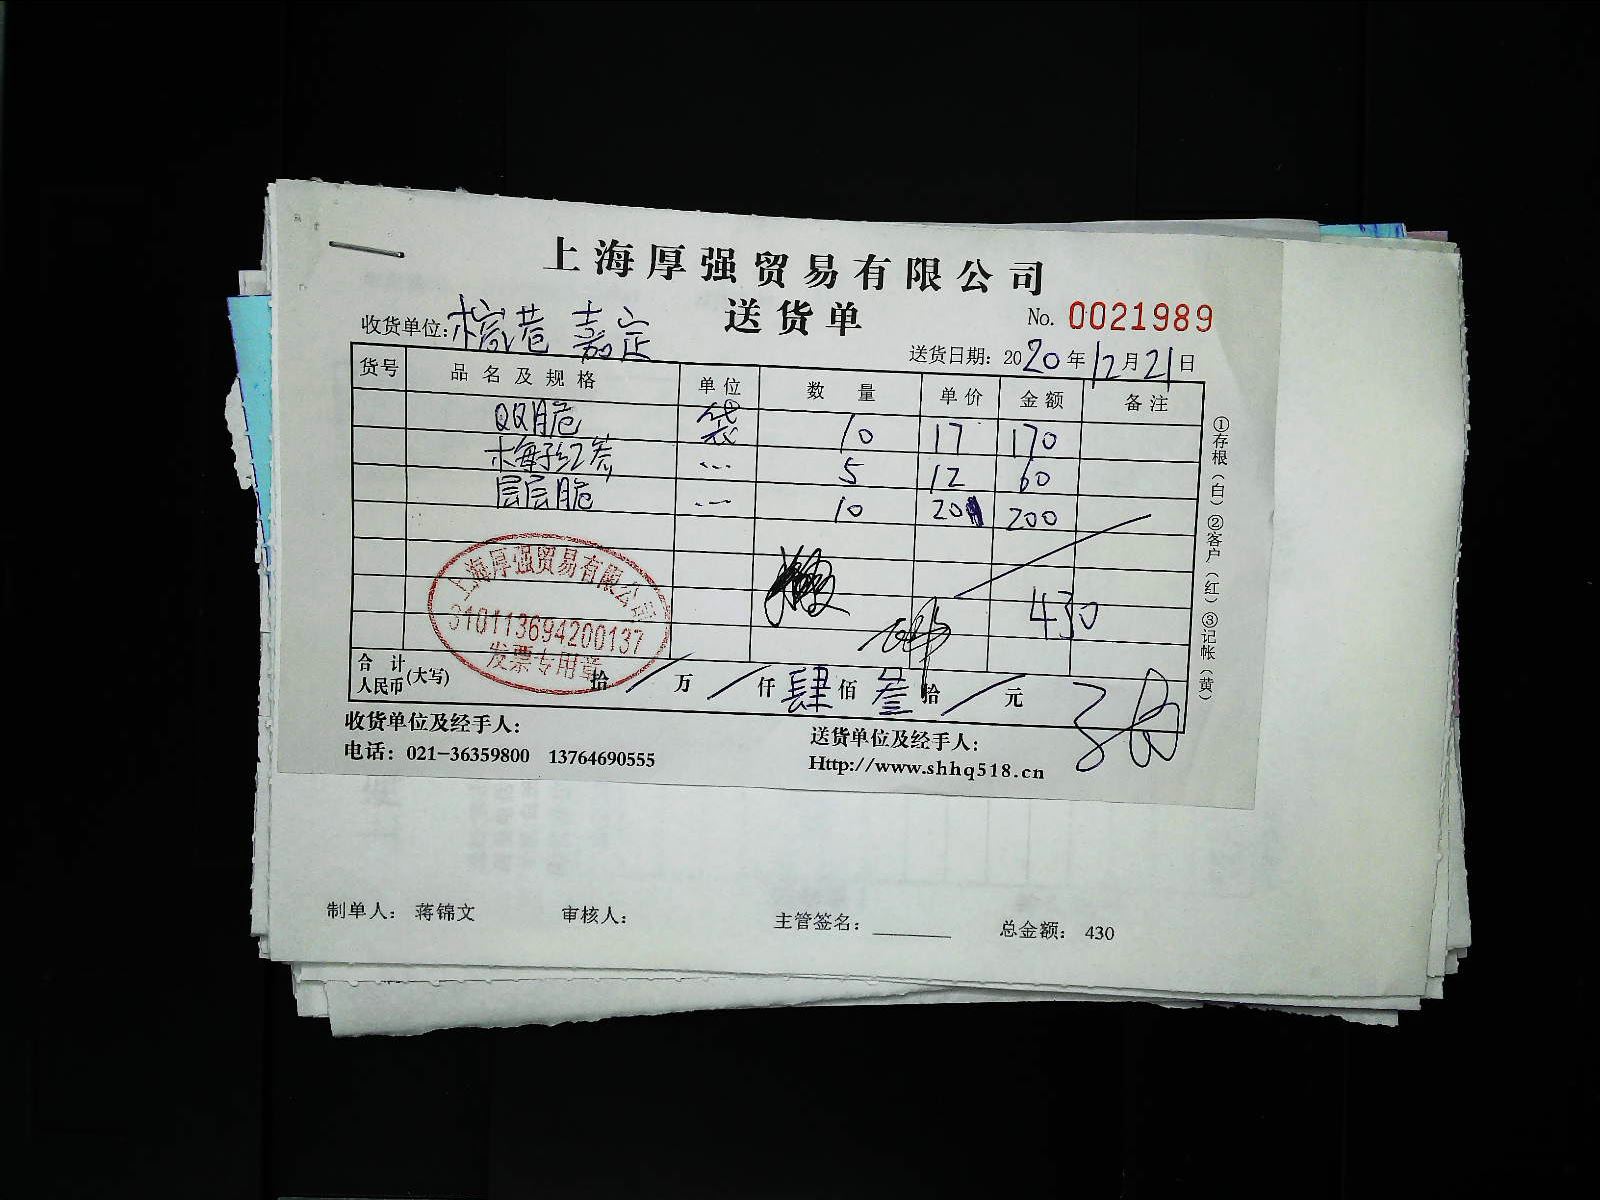 上海厚强贸易有限公司
送货单
No. 0021989
收货单位: 嘉定
送货日期: 2020年12月21日
货号 品名及规格 单位 数量 单价 金额 备注
QQ脆 袋 10 17 170
梅子红茶 5 12 60
层层脆 10 20 200
430
上海厚强贸易有限公司
310113694200137
发票专用章
合计人民币(大写) 拾 / 万 / 仟 肆 佰 叁 拾 / 元
收货单位及经手人:
送货单位及经手人:
电话: 021-36359800 13764690555
Http://www.shhq518.cn
①存根(白)②客户(红)③记帐(黄)
制单人: 蒋锦文 审核人: 主管签名: 总金额: 430